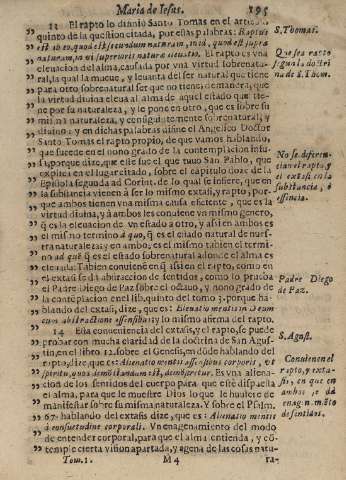 Maria de Iesus. 195
11 El rapto lo difinió Santo Tomas en el articulo
quinto de la question citada, por estas palabras: Raptus
est ab eo, quod est secundum naturam, in id, quod est supra
naturam, in vi superioris naturæ eleuatio. El rapto es vna
eleuacion del alma, causada por vna virtud sobrenatu-
ral, la qual la mueue, y leuanta del ser natural que tiene
para otro sobrenatural ser que no tiene; demanera, que
la virtud diuina eleua al alma de aquel estado que tie-
ne por su naturaleza, y le pone en otro, que es sobre su
misma naturaleza, y consiguientemente sobrenatural, y
diuino: y en dichas palabras difine el Angelico Doctor
Santo Tomas el rapto propio, de que vamos hablando,
que sucede en el nono grado de la contemplacion infu-
sa, porque dize, que este fue el que tuuo San Pablo, que
explica en el lugar citado, sobre el capitulo doze de la
Epistola segunda ad Corint. de lo qual se infiere, que en
la substãcia vienen à ser lo mismo extasi, y rapto, por-
que ambos tienen vna misma causa eficiente, que es la
virtud diuina, y à ambos les conuiene vn mismo genero,
q̃ es la eleuacion de vn estado a otro, y assi en ambos es
el mismo termino à quo, q̃ es el estado natural de nues-
tra naturaleza; y en ambos es el mismo tãbien el termi-
no ad quẽ q̃ es el estado sobrenatural adonde el alma es
eleuada: Tãbien conuienẽ en q̃ assi en el rapto, como en
el extasi se dà abstraccion de sentidos, como lo prueba
el Padre Diego de Paz sobre el octauo, y nono grado de
la contẽplacion en el lib. quinto del tomo 3. porque ha-
blando del extasis, dize, que es: Eleuatio mentis in Deum
cum abstractione à sensibus; y lo mismo afirma del rapto.
14 Esta conueniencia del extasis, y el rapto, se puede
probar con mucha claridad de la doctrina de San Agus-
tin, en el libro 12. sobre el Genesis, mdõde hablando del
rapto, dize, que es: Alienatio mentis à sensibus corporis, vt
spiritu, quod demonstrandum est, demonstretur. Es vna aliena-
cion de los sentidos del cuerpo para que estè dispuesta
el alma, para que le muestre Dios lo que huuiere de
manifestar sobre su misma naturaleza. Y sobre el Psalm.
67. hablando del extasis dize, que es: Alienatio mentis
à consuetudine corporali. Vn enagenamiento del modo
de entender corporal, para que el alma entienda, y cõ-
temple cierta visiõn apartada, y agena de las cosas natu-
Tom. 1. M 4 ra-
S. Thomas.
Que sea rapto
segun la doctri
na de S. Thom.
No se diferen-
cian el rapto, y
el extasis en la
substancia, ò
essencia.
Padre Diego
de Paz.
S. Agust.
Conuienen el
rapto, y exta-
sis, en que en
ambos se dà
enagen. miẽto
de sentidos.